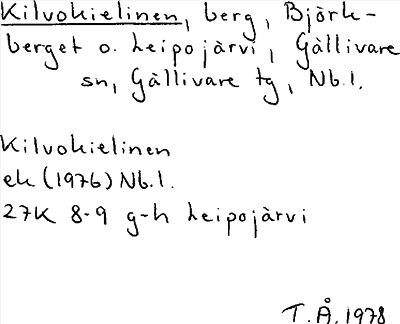 Kilvokielinen, berg, Björk-
berget o. Leipojärvi, Gällivare
sn, Gällivare tg, Nb.l.
Kilvokielinen
ek (1976) Nb.l.
27K 8-9 g-h Leipojärvi
T.Å. 1978